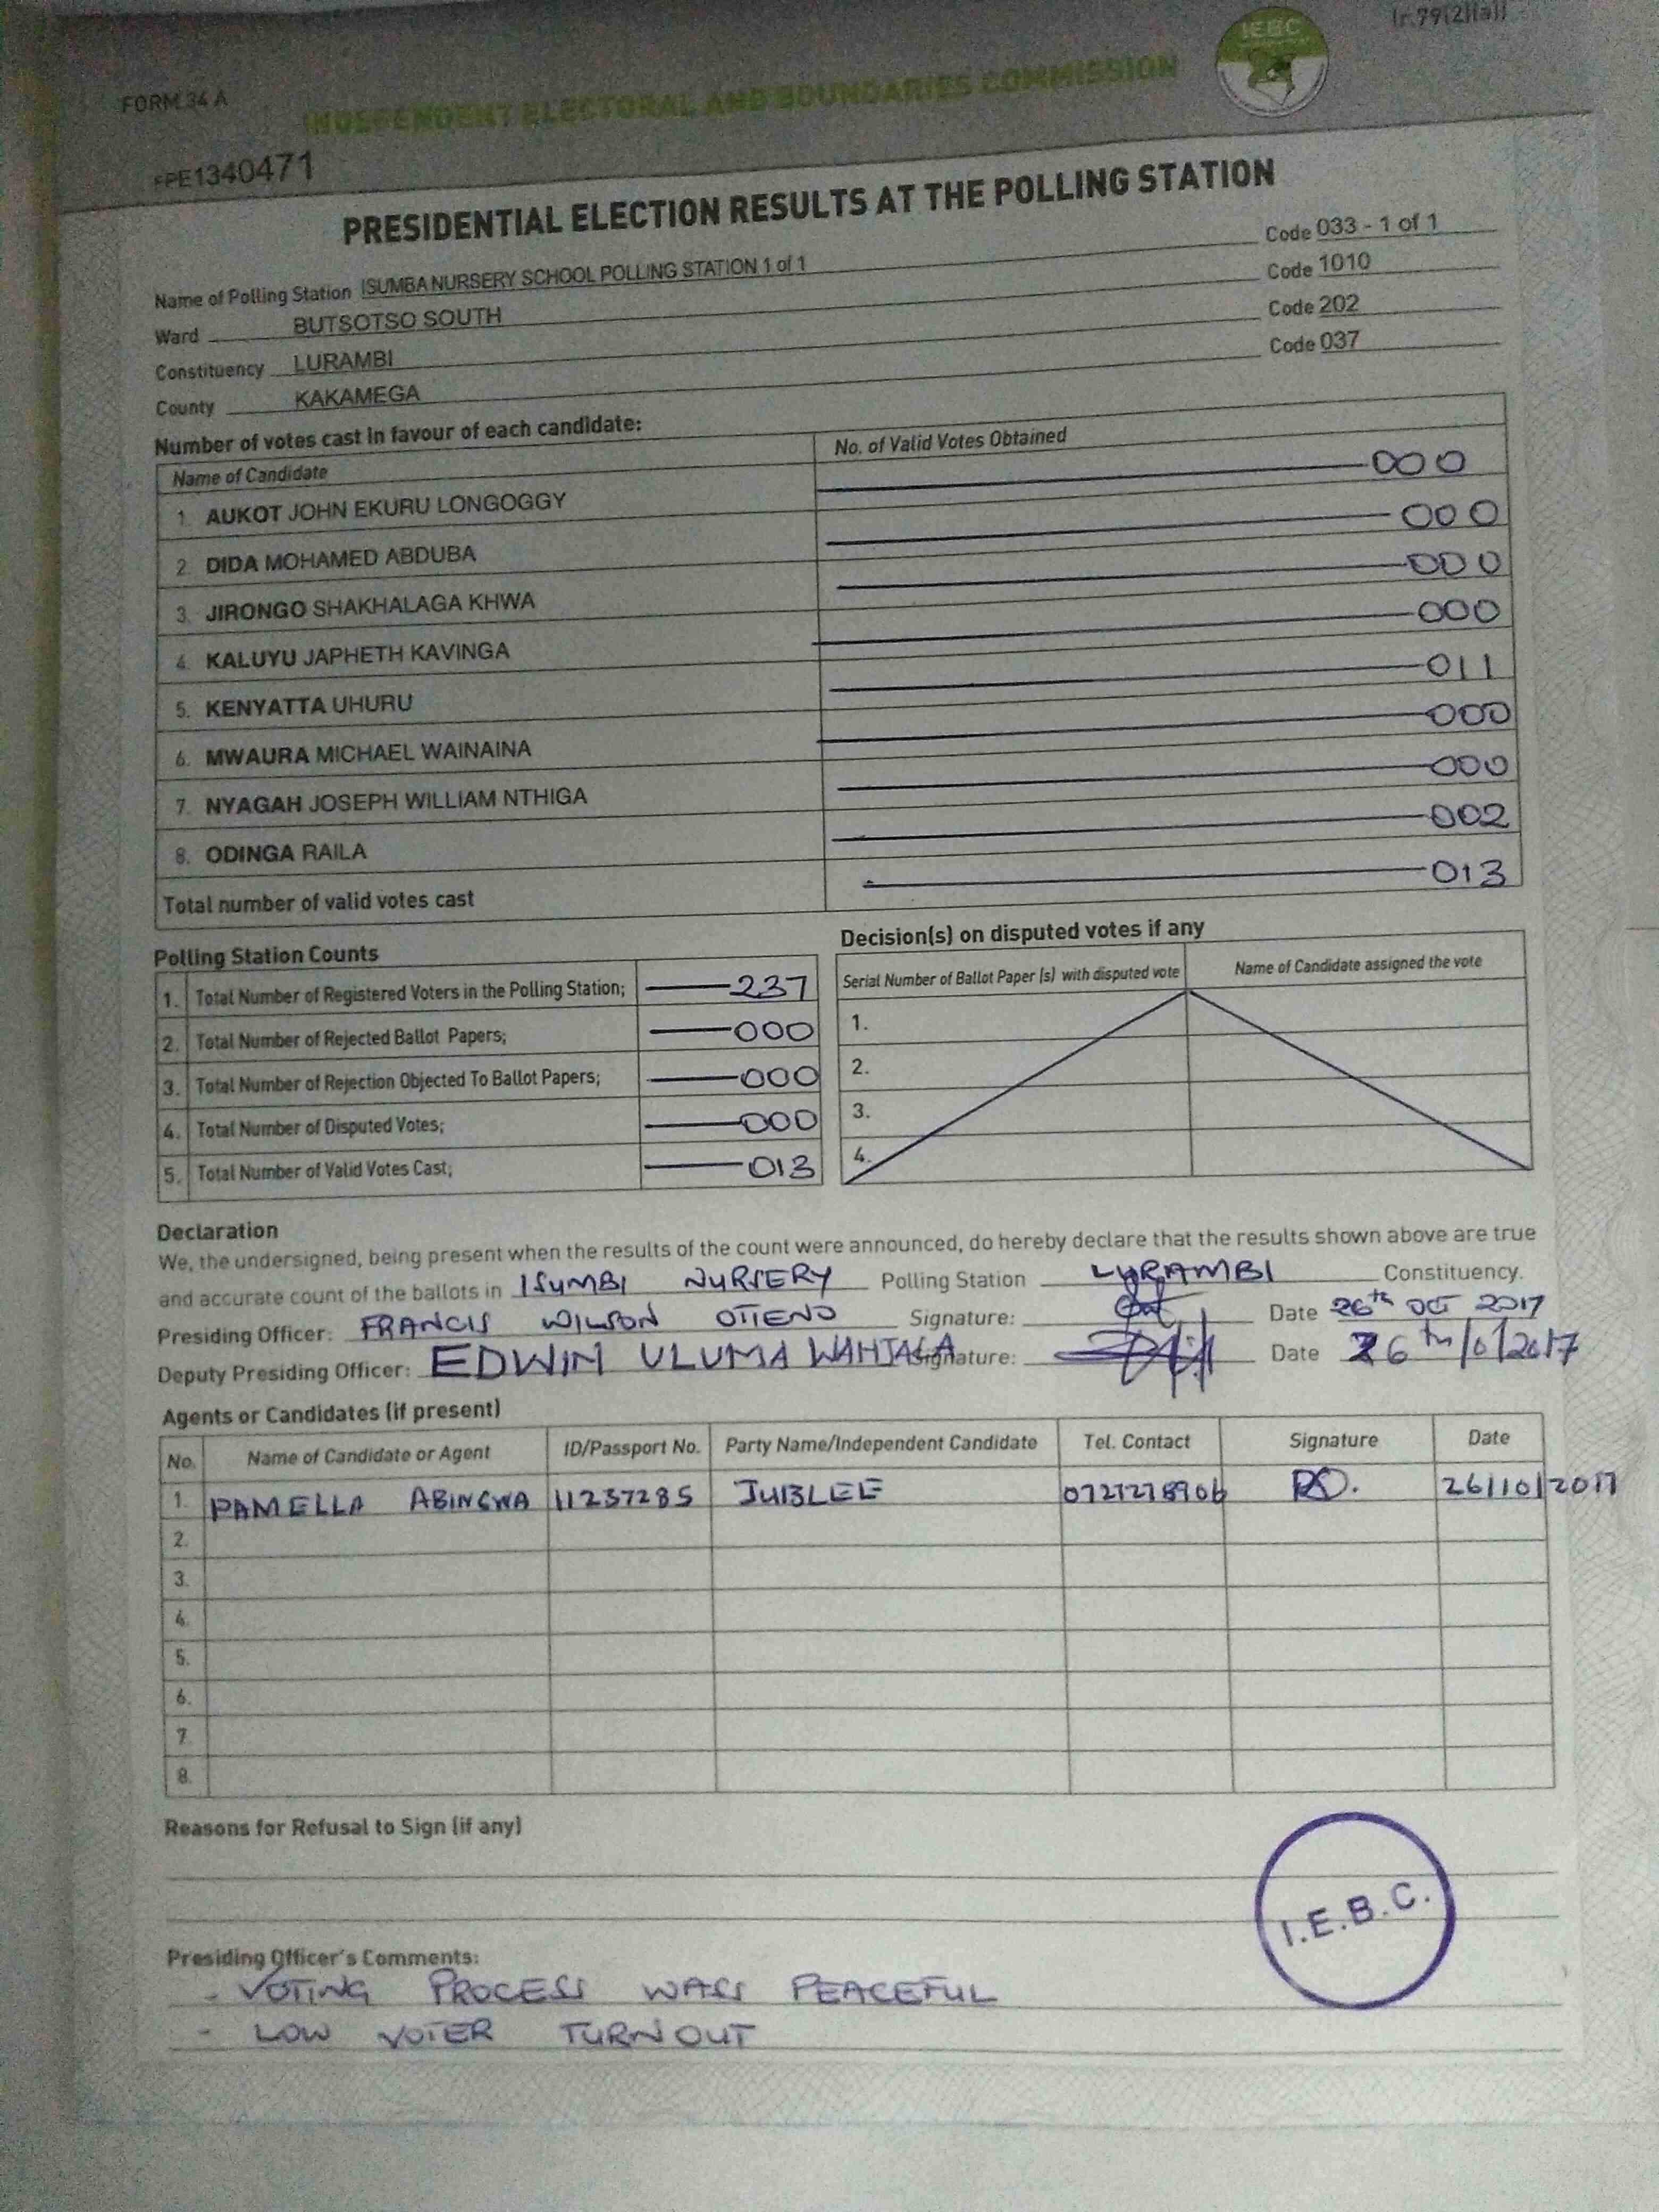 FORM 34 A
INDEPENDENT ELECTORAL AND BOUNDARIES COMMISSION
IEBC
PRESIDENTIAL ELECTION RESULTS AT THE POLLING STATION
Name of Polling Station ISUMBA NURSERY SCHOOL POLLING STATION 1 of 1 Code 033 - 1 of 1
Ward BUTSOTSO SOUTH Code 1010
Constituency LURAMBI Code 202
County KAKAMEGA Code 037
Number of votes cast in favour of each candidate:
Name of Candidate No. of Valid Votes Obtained
1. AUKOT JOHN EKURU LONGOGGY 000
2. DIDA MOHAMED ABDUBA 000
3. JIRONGO SHAKHALAGA KHWA 000
4. KALUYU JAPHETH KAVINGA 000
5. KENYATTA UHURU 011
6. MWAURA MICHAEL WAINAINA 000
7. NYAGAH JOSEPH WILLIAM NTHIGA 000
8. ODINGA RAILA 002
Total number of valid votes cast 013
Polling Station Counts
1. Total Number of Registered Voters in the Polling Station; 237
2. Total Number of Rejected Ballot Papers; 000
3. Total Number of Rejection Objected To Ballot Papers; 000
4. Total Number of Disputed Votes; 000
5. Total Number of Valid Votes Cast; 013
Decision(s) on disputed votes if any
Serial Number of Ballot Paper (s) with disputed vote Name of Candidate assigned the vote
1.
2.
3.
4.
Declaration
We, the undersigned, being present when the results of the count were announced, do hereby declare that the results shown above are true
and accurate count of the ballots in ISUMBI NURSERY Polling Station LURAMBI Constituency.
Presiding Officer: FRANCIS WILSON OTIENO Signature: Date 26th OCT 2017
Deputy Presiding Officer: EDWIN ULUMA WAHJALA Signature: Date 26th/10/2017
Agents or Candidates (if present)
No. Name of Candidate or Agent ID/Passport No. Party Name/Independent Candidate Tel. Contact Signature Date
1. PAMELLA ABINGWA 11237285 JUBLEE 0727278906 26/10/2017
2.
3.
4.
5.
6.
7.
8.
Reasons for Refusal to Sign (if any)
I.E.B.C.
Presiding Officer's Comments:
- VOTING PROCESS WASS PEACEFUL
- LOW VOTER TURNOUT